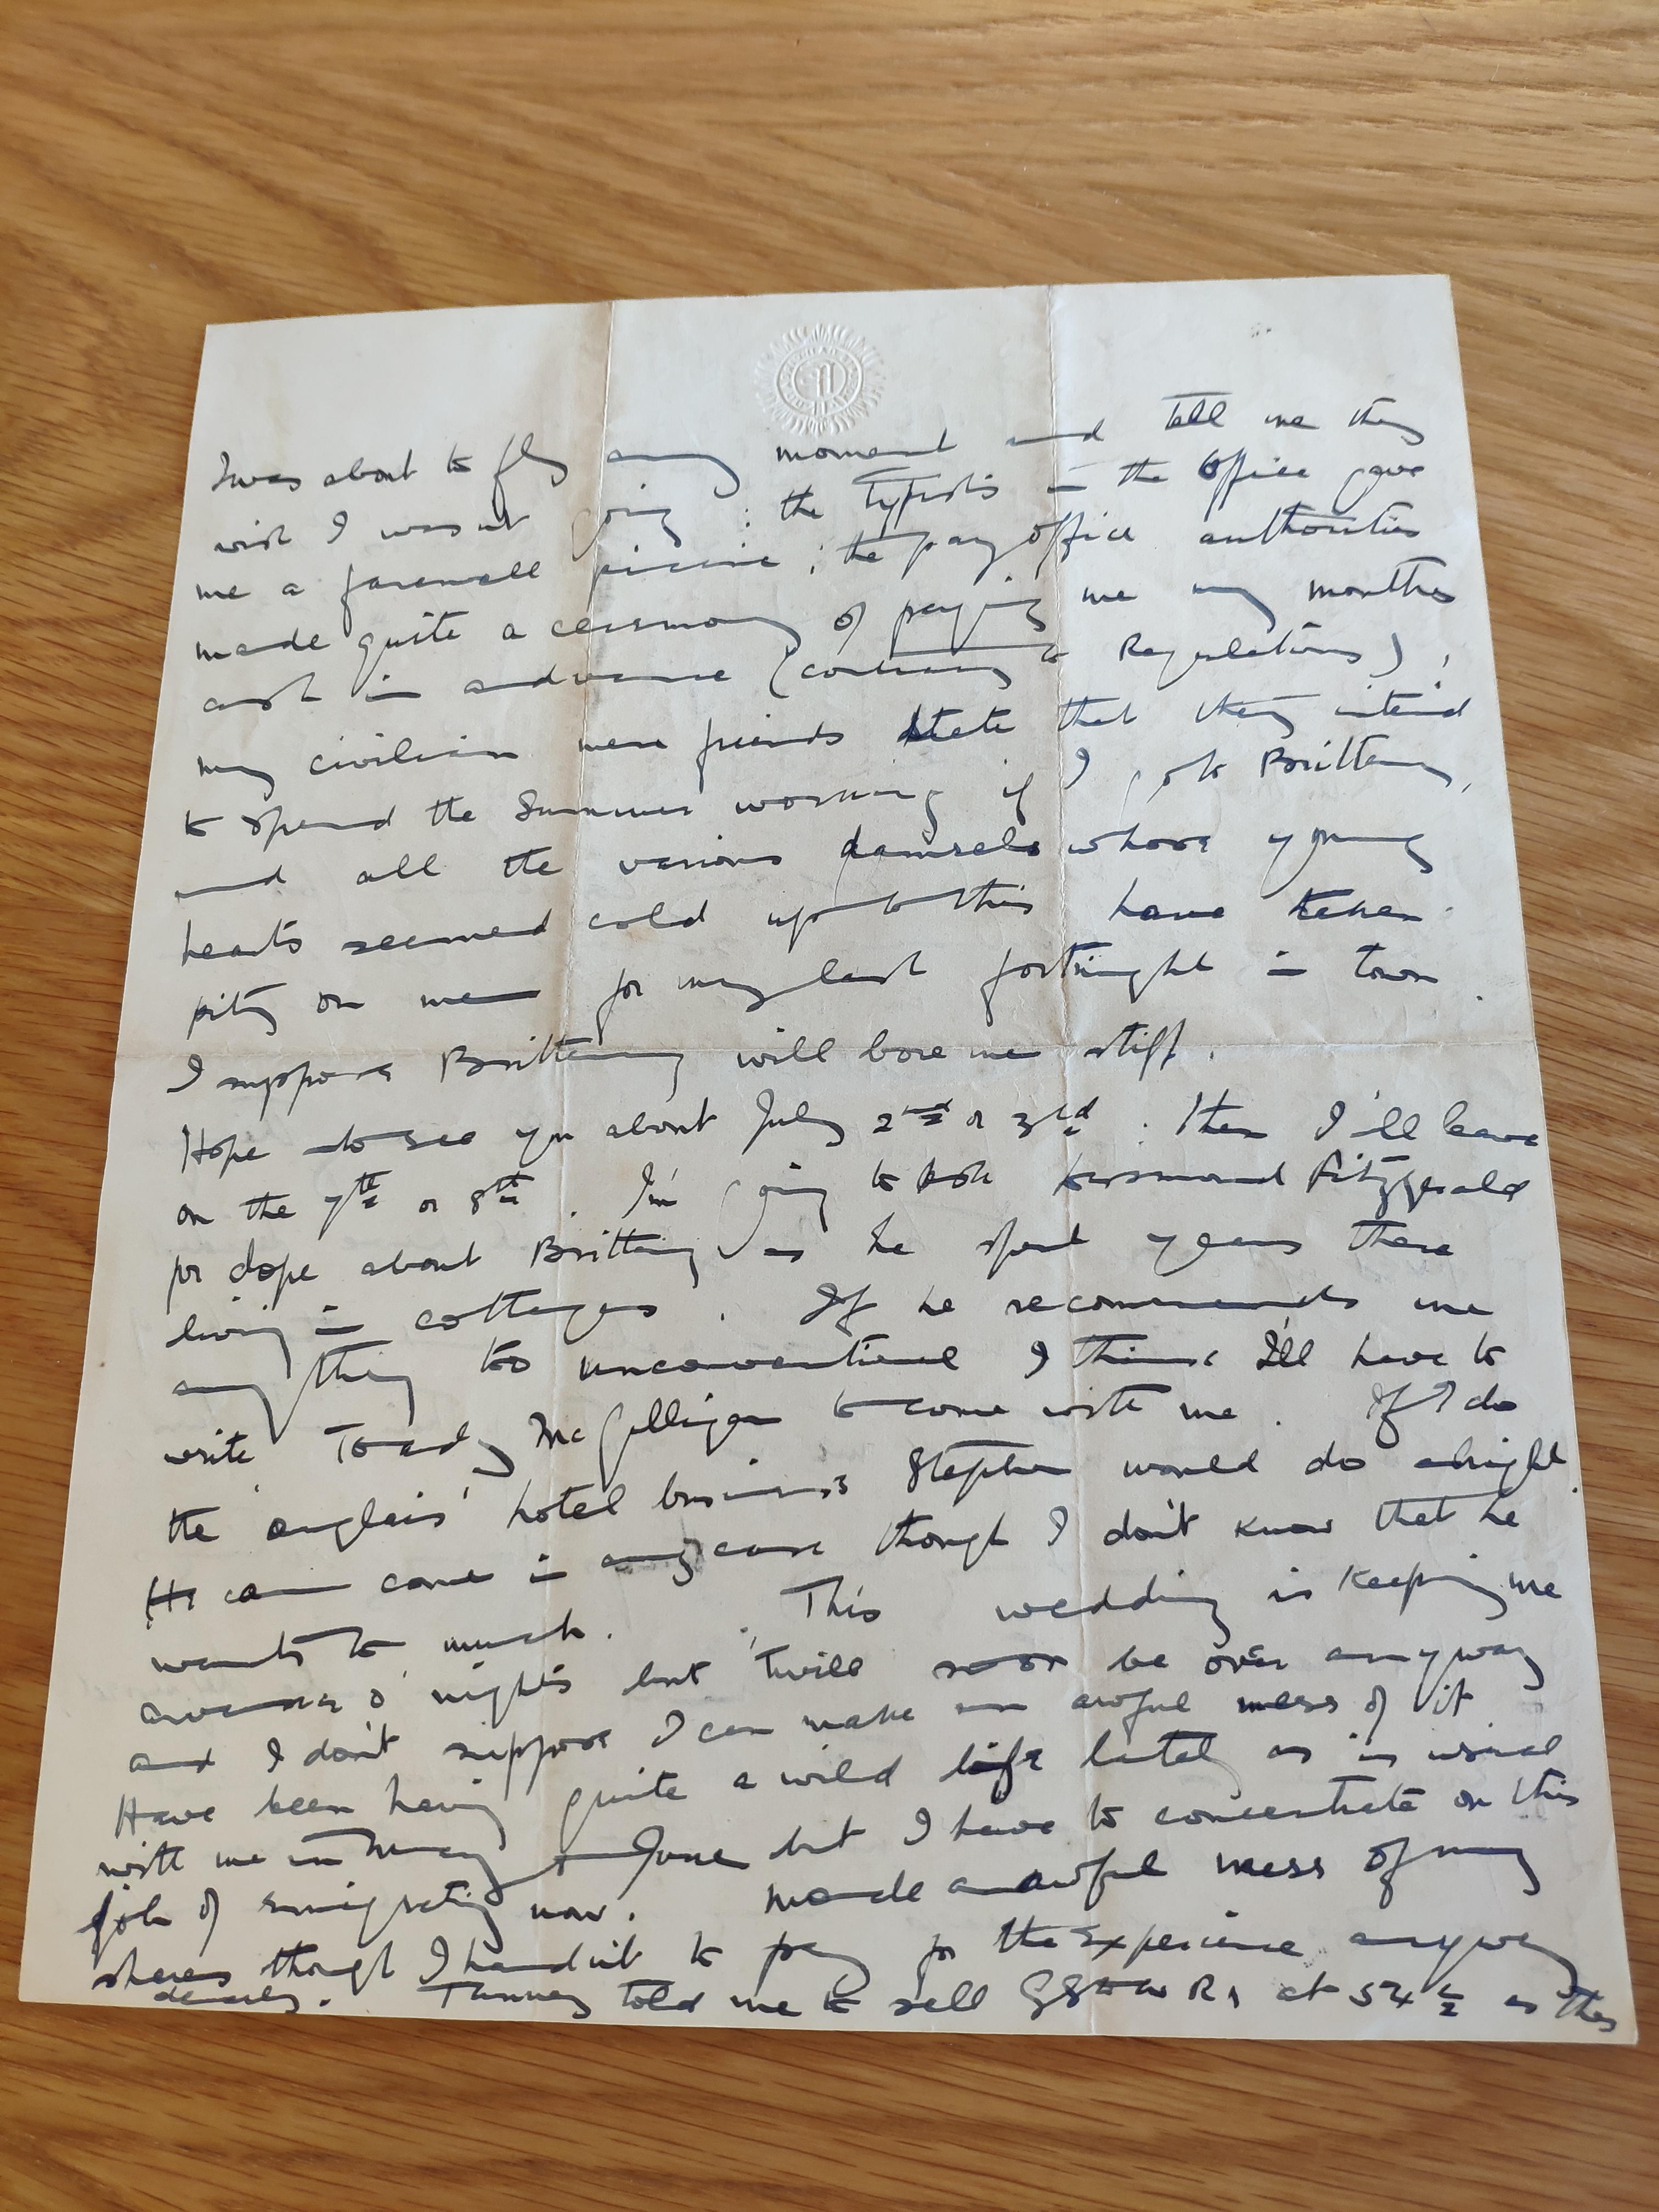 I was about to fly any moment and tell me they
wish I wasn't going : the typists in the office gave
me a farewell picnic ; the pay office authorities
made quite a ceremony of paying me my months
cash in advance (contrary to Regulations) ,
my civilian men friends state that they intend
to spend the Summer working if I go to Brittany,
and all the various damsels whose young
hearts seemed cold up to this have taken
pity on me for my last fortnight in town .
I suppose Brittany will bore me stiff .
Hope to see you about July 2nd or 3rd : then I'll leave
on the 7th or 8th . I'm going to ask Fitzgerald
for dope about Brittany as he spent years there
living in cottages . If he recommends me
anything too unconventional I think I'll have to
write Toady McGilligan to come with me . If I do
the 'anglais' hotel business Stephen would do alright .
He can come in any case though I don't know that he
wants to much . This wedding is keeping me
awake o' nights but 'twill soon be over anyway
and I don't suppose I can make an awful mess of it
Have been having quite a wild life lately as is usual
with me in May + June but I have to concentrate on this
job of emigrating now . Made an awful mess of my
shares though I had to pay for the experience anyway
dearly . told me to sell at 54 ½ as they